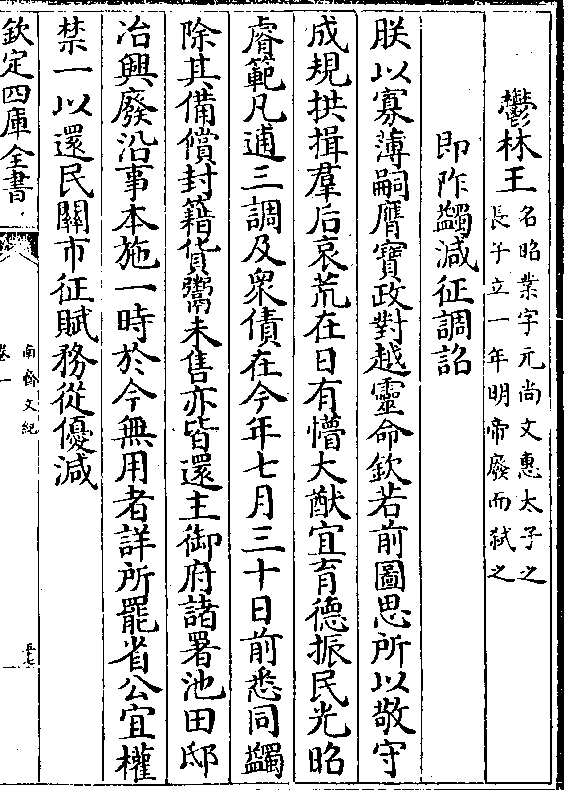 鬱林王名昭業字元尚文惠太子之
長子立一年明帝廢而弒之
即阼蠲減征調詔
朕以寡薄嗣膺寶政對越靈命欽若前圖思所以敬守
成規拱揖羣后哀荒在日有懵大猷宜育德振民光昭
睿範凡逋三調及衆債在今年七月三十日前悉同蠲
除其備償封籍貨鬻未售亦皆還主御府諸署池田邸
冶興廢沿事本施一時於今無用者詳所罷省公宜權
禁一以還民關市征賦務從優減
欽定四庫全書
南齊文紀
卷一